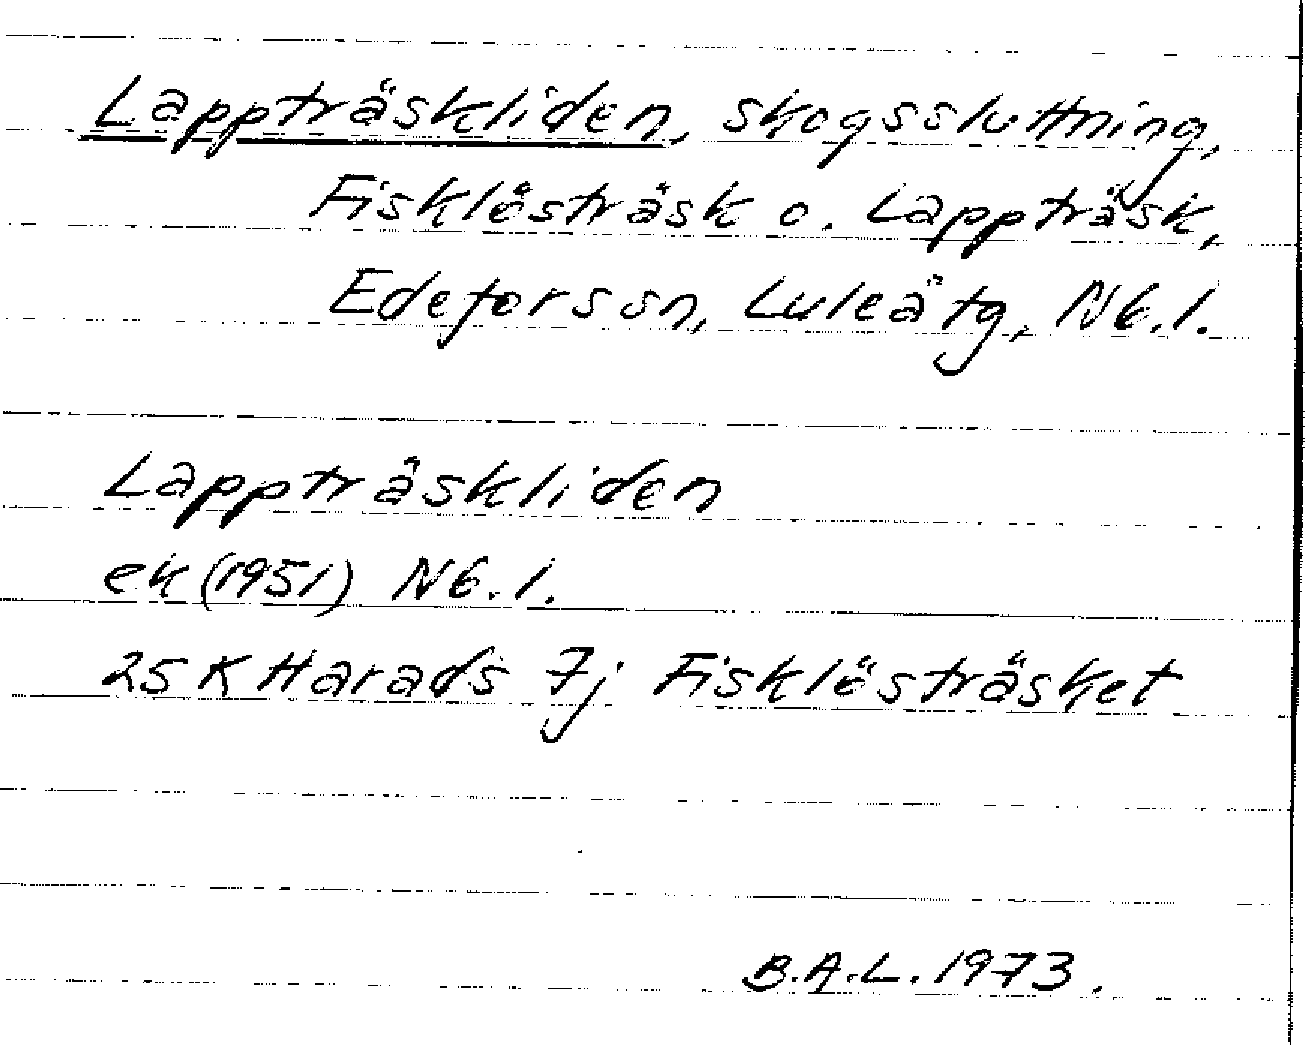 Lappträskliden, skogssluttning,
Fisklösträsk o. Lappträsk,
Edefors sn, Luleå tg, N6.1.
Lappträskliden
ek (1951) N6.1.
25 K Harads 7j Fisklösträsket
B.A.L. 1973.